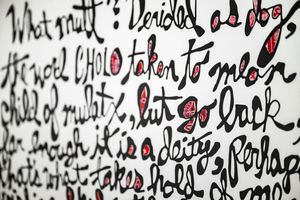 What mutt? Derided as a
the word CHOLO taken to mean
child of mulatx, but go back
far enough it is a deity, Perhap
that's what takes hold of me